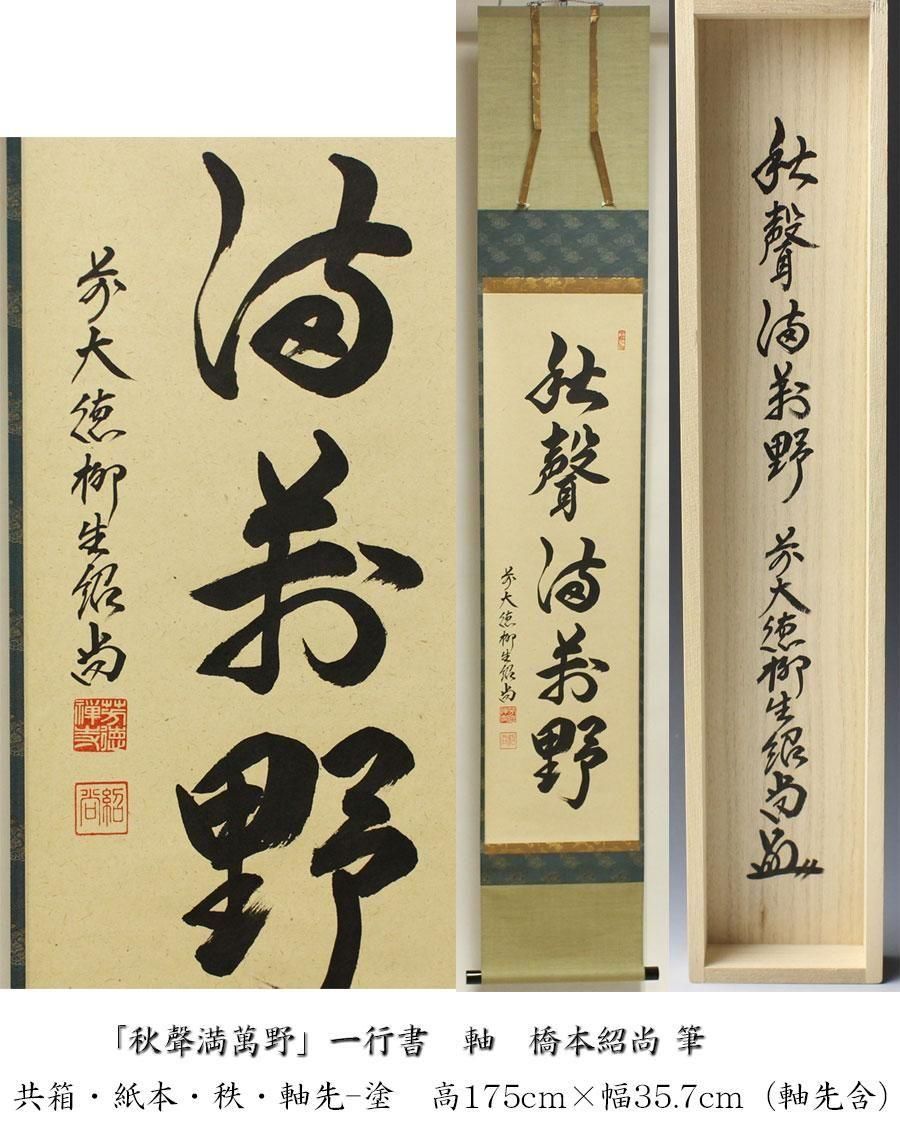 満萬野
前大徳柳生紹尚
芳徳禅寺
紹尚
秋聲満萬野
前大徳柳生紹尚
秋聲満萬野 前大徳柳生紹尚
「秋聲満萬野」一行書　軸　橋本紹尚 筆
共箱・紙本・秩・軸先-塗　高175cm×幅35.7cm（軸先含）